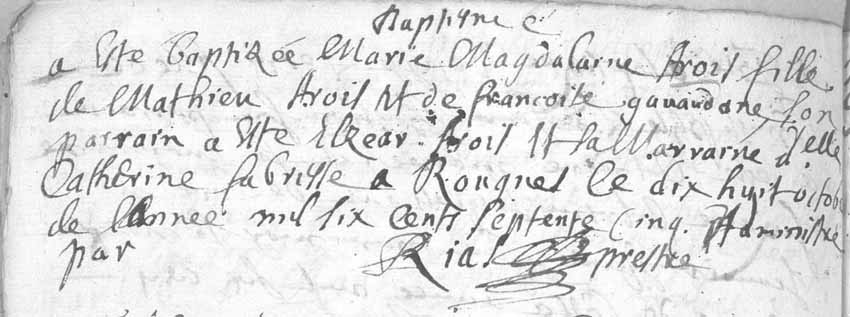 Baptisme
a este baptizée Marie Magdalaine Arois fille
de Mathieu Arois et de francoise gavaudane son
parrain a este Elzear Arois et sa Marraine d'elle
Catherine fabrysse a Rouguel le dix huit octob
de lannee mil six cents septente cinq administre
par Rias prestre